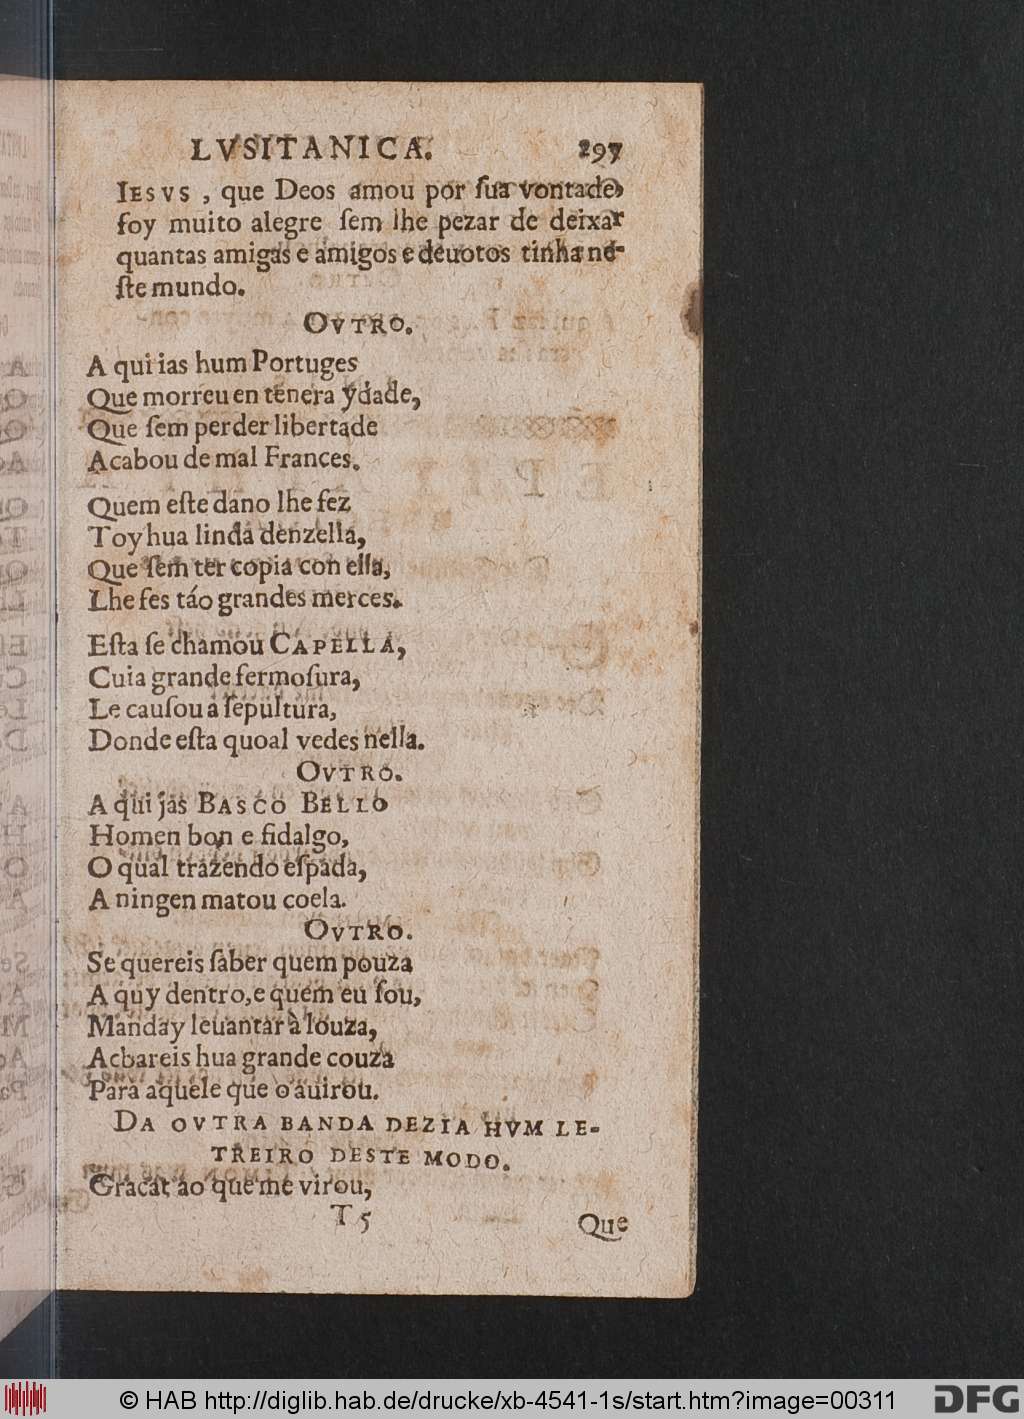 LVSITANICÆ. 297
IESVS, que Deos amou por ſua vontade,
foy muito alegre ſem lhe pezar de deixar
quantas amigas e amigos e deuotos tinha ne-
ſte mundo.
OVTRO.
A qui ias hum Portuges
Que morreu en tenera ydade,
Que ſem perder libertade
Acabou de mal Frances.
Quem eſte dano lhe fez
Toy hua linda denzella,
Que ſem ter copia con ella,
Lhe fes táo grandes merces.
Eſta ſe chamou CAPELLA,
Cuia grande fermoſura,
Le cauſou a ſepultura,
Donde eſta quoal vedes nella.
OVTRO.
A qui jas BASCO BELLO
Homen bon e fidalgo,
O qual trazendo eſpada,
A ningen matou coela.
OVTRO.
Se quereis ſaber quem pouza
A quy dentro, e quem eu ſou,
Manday leuantar à louza,
Acbareis hua grande couza
Para aquele que o auirou.
DA OVTRA BANDA DEZIA HVM LE-
TREIRO DESTE MODO.
Gracat ao que me virou,
T 5 Que
© HAB http://diglib.hab.de/drucke/xb-4541-1s/start.htm?image=00311 DFG